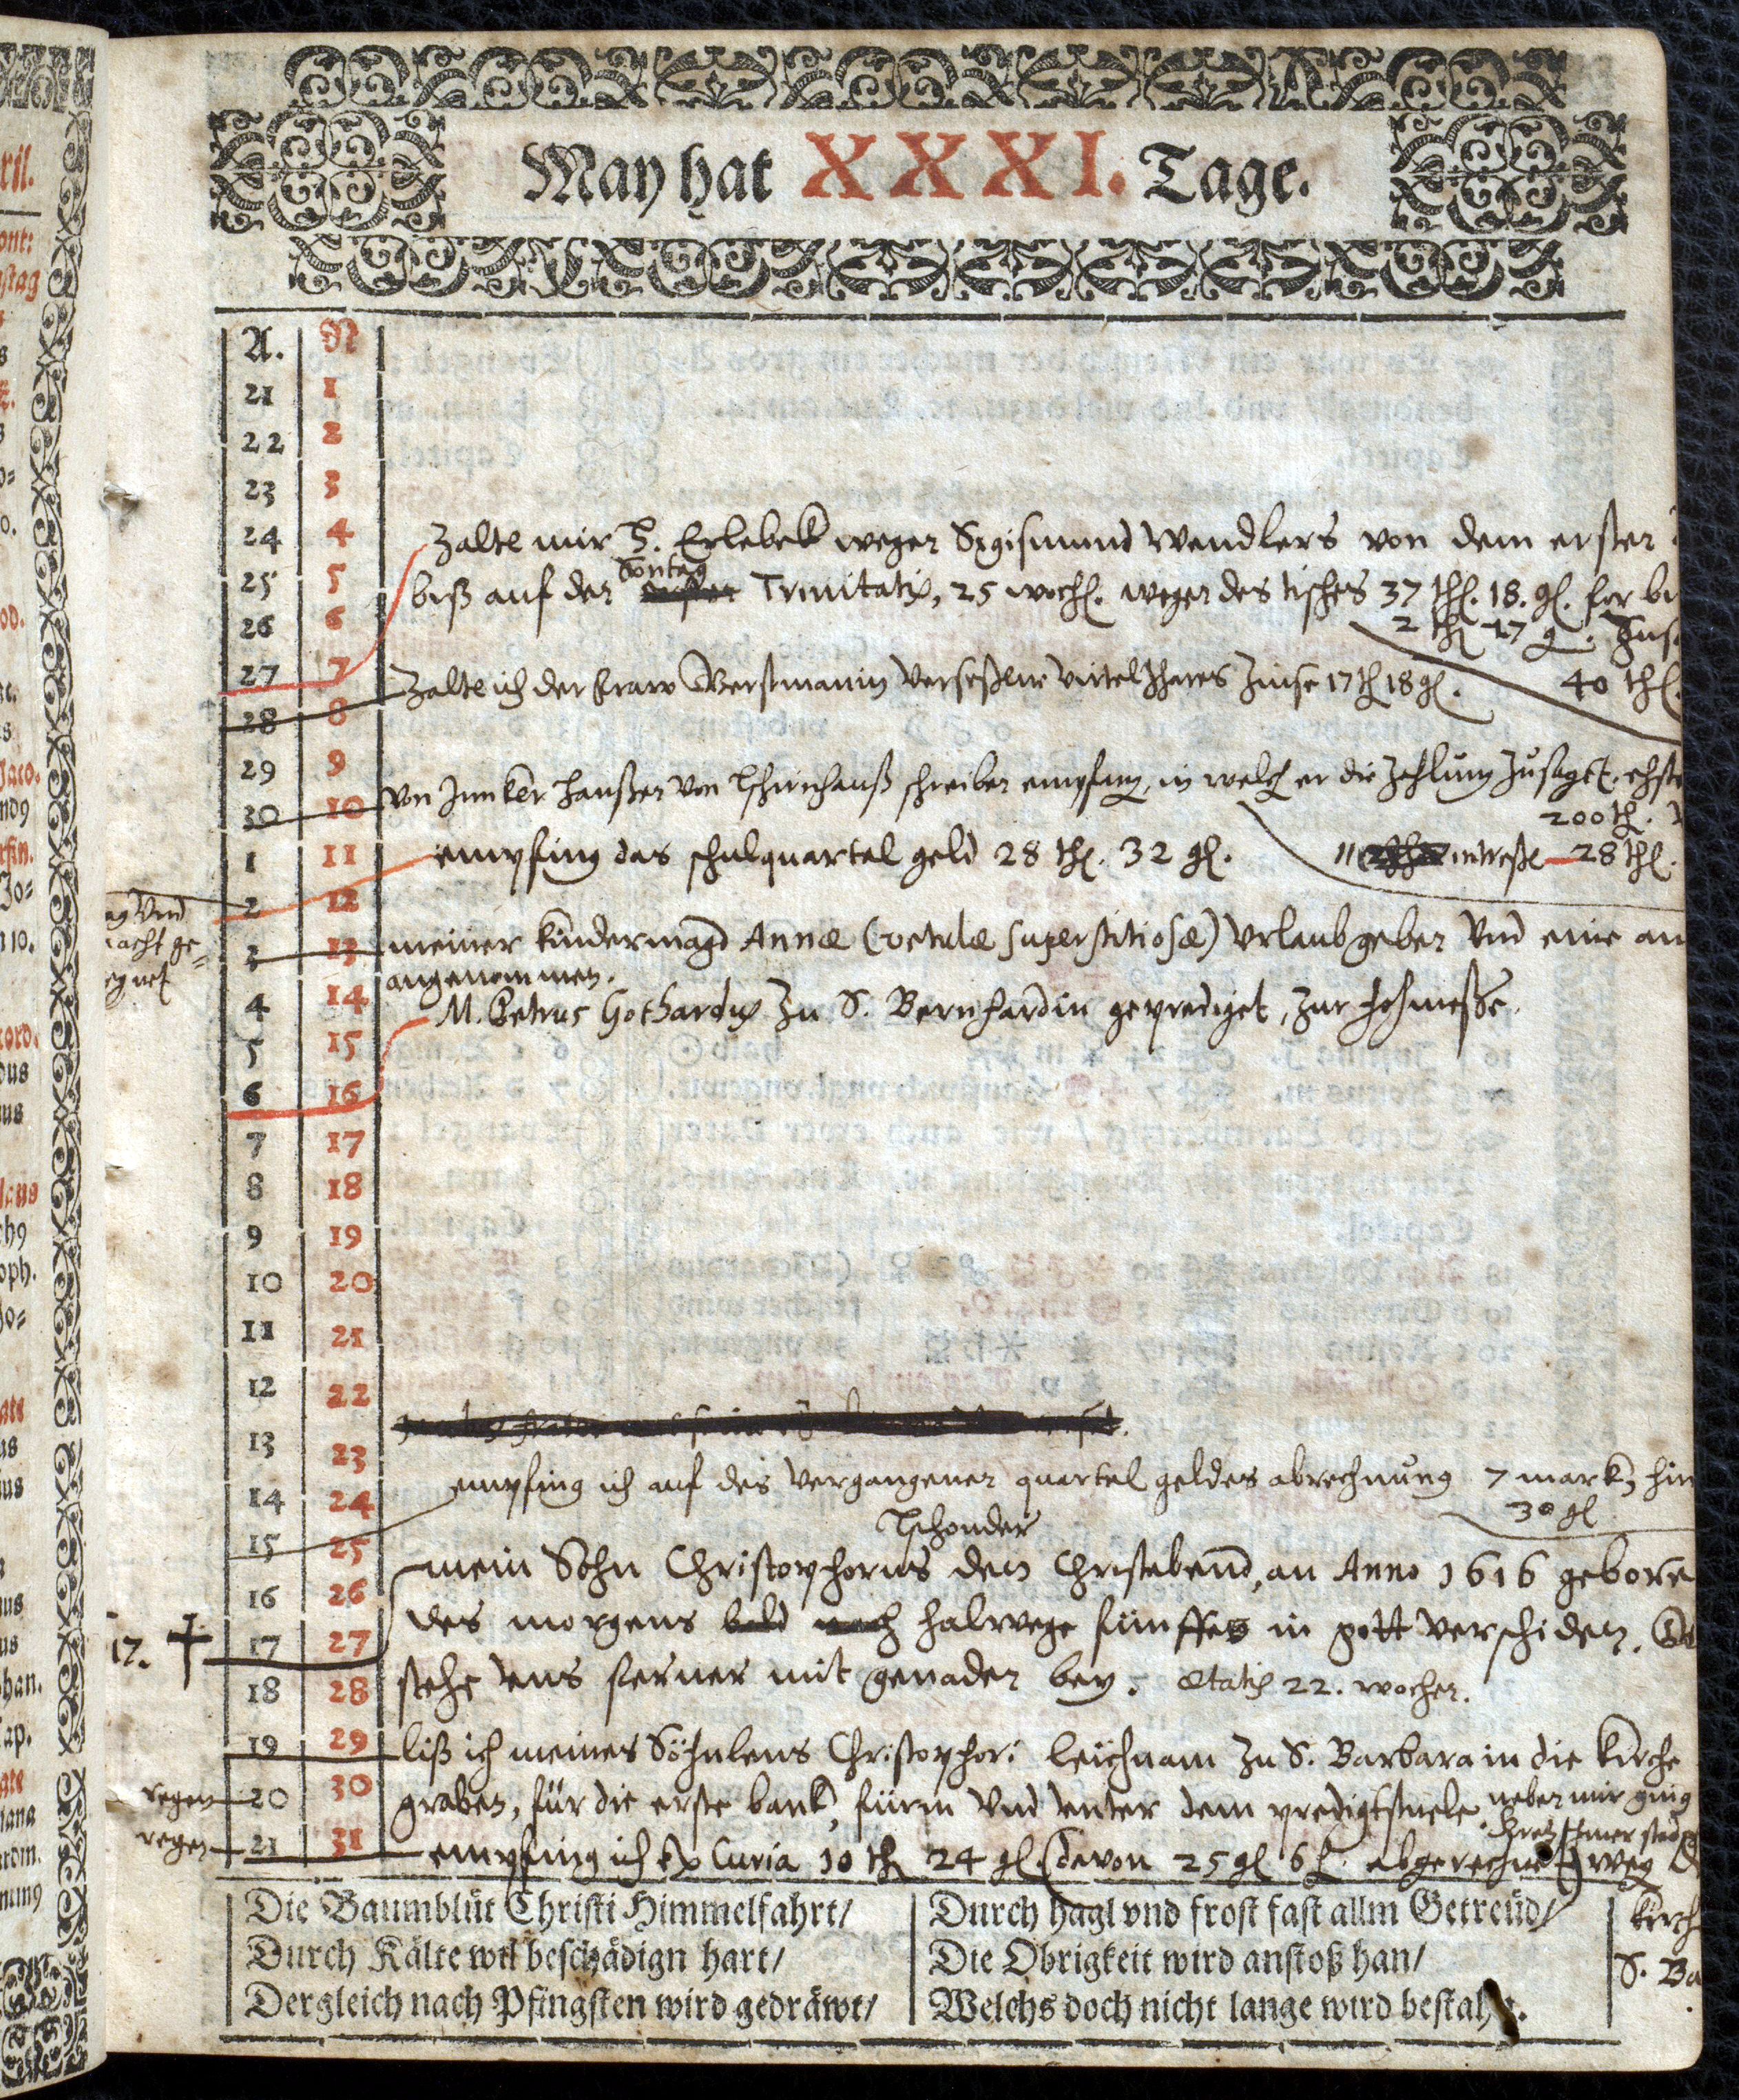 May hat XXXI. Tage.
A. N
21 1
22 2
23 3
24 4
25 5
26 6
27 7
28 8
29 9
30 10
1 11
2 12
3 13
4 14
5 15
6 16
7 17
8 18
9 19
10 20
11 21
12 22
13 23
14 24
15 25
16 26
17 27
18 28
19 29
20 30
21 31
zalte mir H. Erlebek wegen Sigismund Wendlers von dem ersten
Sontag
biß auf den Trinitatis, 25 woch. wegen des tisches 37 thl. 18. gl.
2 th 17 g.
zalte ich der fraw verseßene virtel Jhares Zinse 17 th 18 gl.
40 thl.
von Junker Hanßen von Tschirnhauß schreiben empfang, in welch er die Zahlung zusagt.
200 th.
empfing das schulquartal geld 28 th. 32 gl.
intreße 28 thl.
meiner kindermagd Annæ (vetulæ superstitiosæ) Urlaub geben Und eine an
angenommen.
M. Petrus Gothardus zu S. Bernhardin geprediget, zur hohmesse.
empfing ich auf des vergangenen quartal geldes abrechnung 7 mark
30 gl
Tschonder
mein Sohn Christophorus den Christabend, an Anno 1616 gebore
des morgens bald nach halwege fünffes in gott verschiden.
stehe uns ferner mit genaden bey. ætatis 22. wochen.
17.
liß ich meines Söhnlens Christophori leichnam zu S. Barbara in die kirche
graben, für die erste bank, fürm Und unter dem predigtstuele. neben mir ging
empfing ich ex Curia 10 th 24 gl. (davon 25 gl 6 abgerechnet) weg
regen
regen
kirch
S. Ba
Die Baumblüt Christi Himmelfahrt/
Durch Kälte wil beschädign hart/
Dergleich nach Pfingsten wird gedräwt/
Durch hagl vnd frost fast allm Getreüd/
Die Obrigkeit wird anstoß han/
Welchs doch nicht lange wird bestahn.